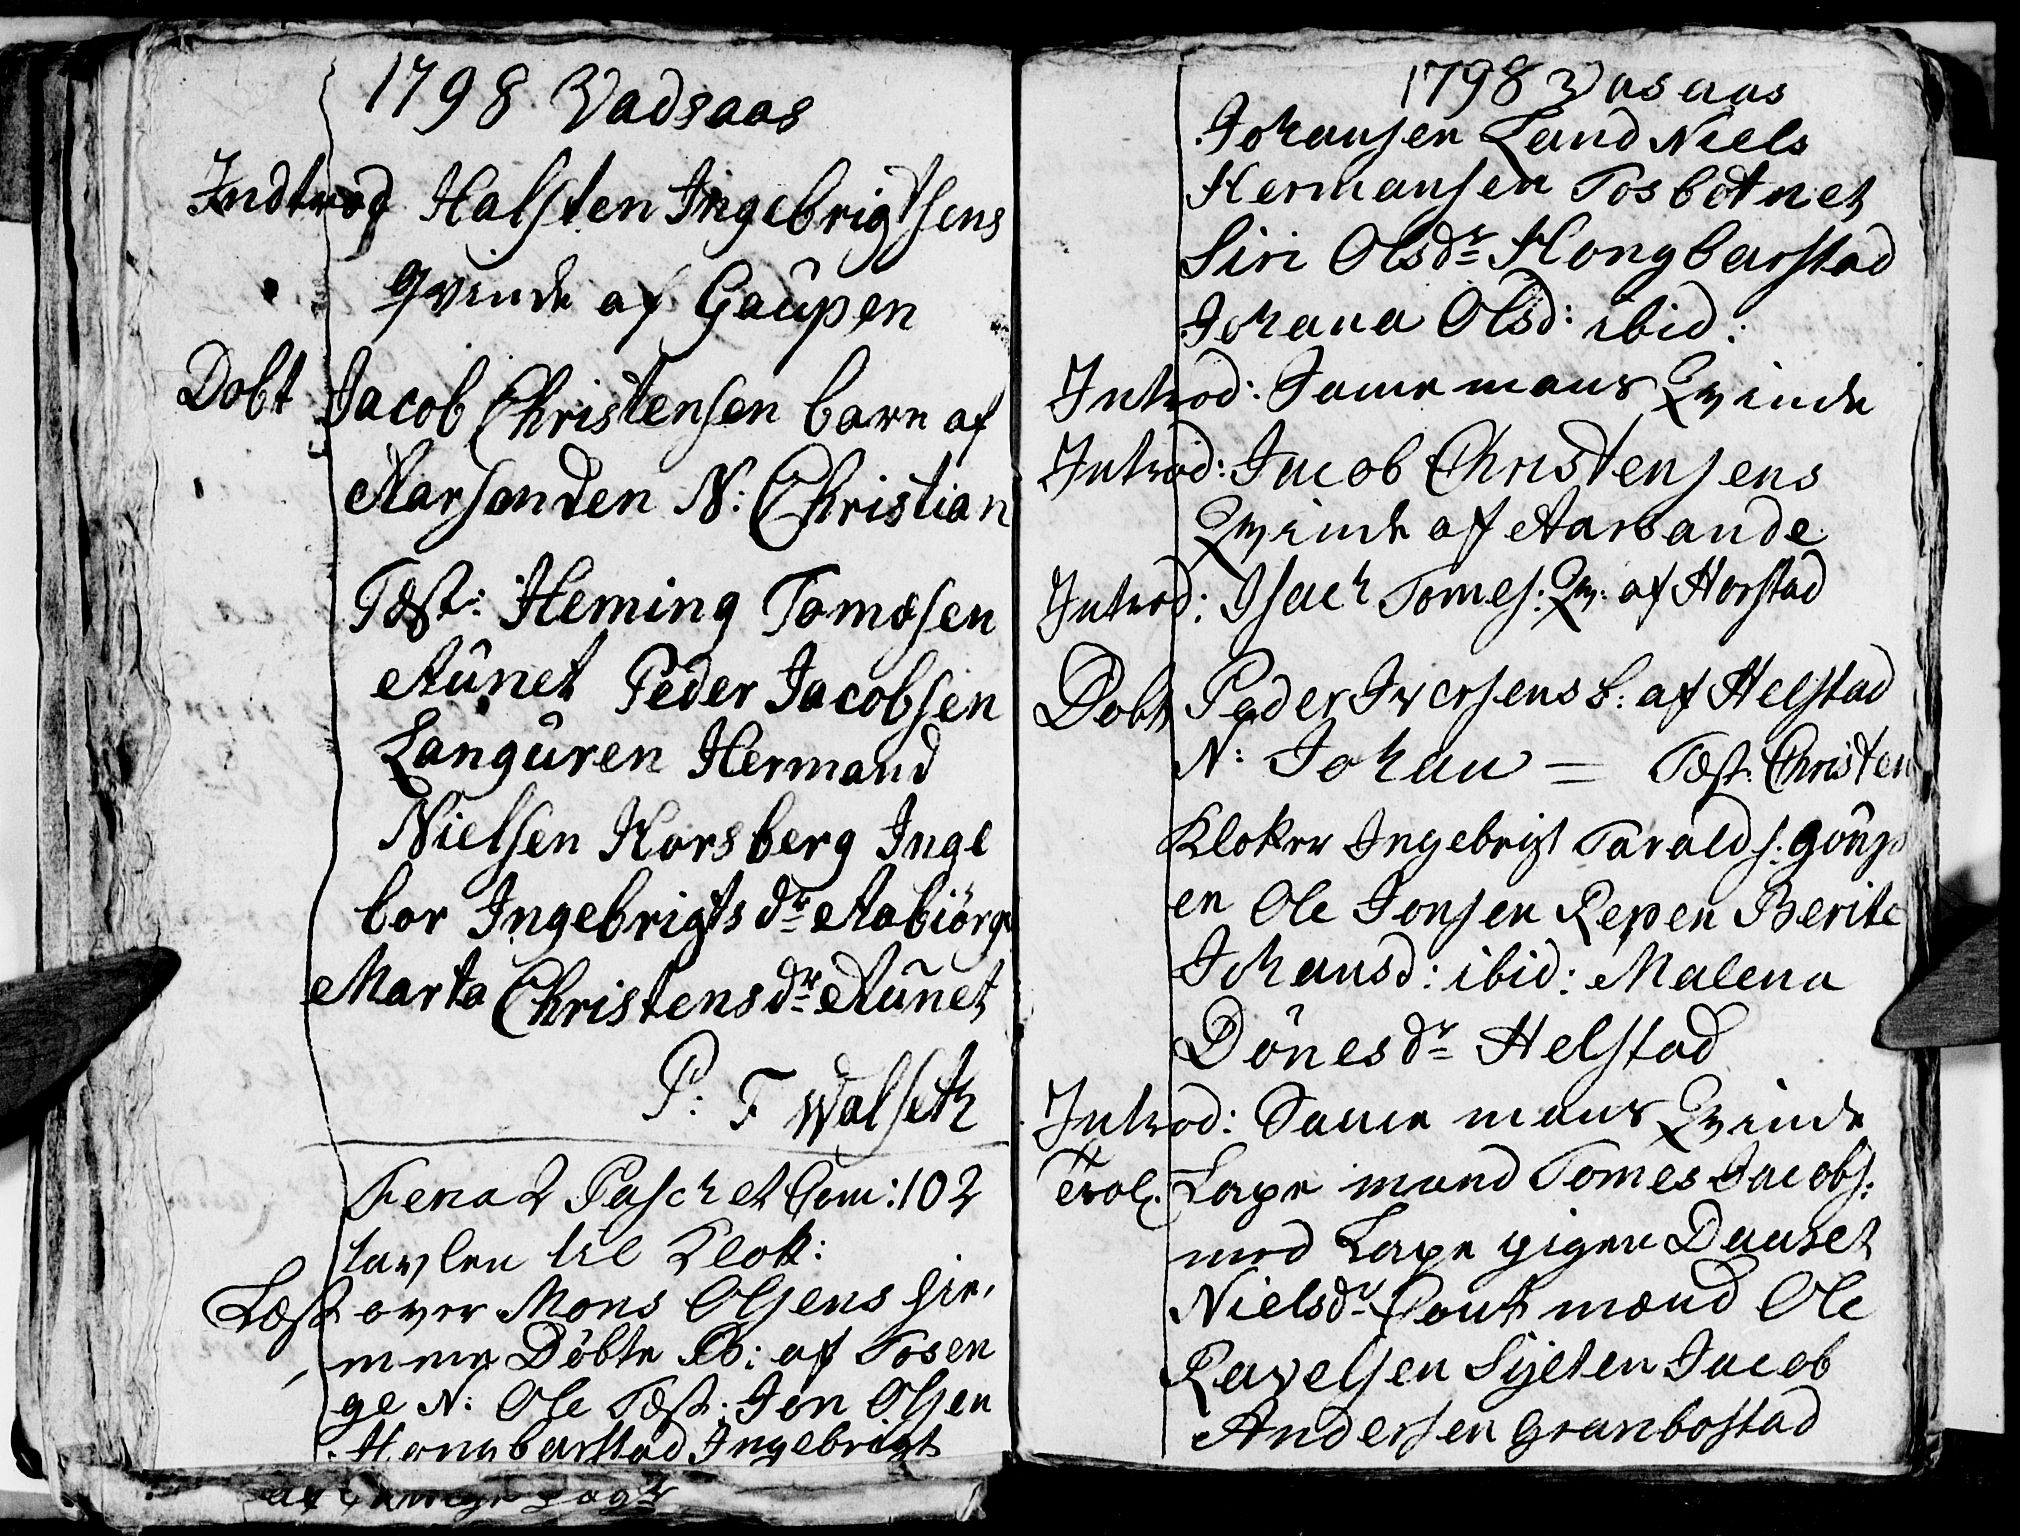 1798 Vadsaas
Indtrod Halsten Ingebrigtsens
qvinde af Gaupen
Dobt Jacob Christensen barn af
Aarsanden N: Christian
Test: Heming Tomesen
Aunet Peder Jacobsen
Languren Hermand
Nielsen Horsberg Inge
bor Ingebrigts dr Aabiörg
Marta Christens dr Aunet
P: F Walseth
Fena 2 Pasch et Com: 102
tavlen til Klok:
Læst over Mons Olsens hie,
mme Döbte B: af Tosen
ge N: Ole Test: Jon Olsen
Hongbarstad Ingebrigt
1798 Vasaas
Johansen Land Niels
Hermansen Tosbotnet
Siri Olsdr Hongbarstad
Johana Olsd: ibid:
Introd: Same mans Qvinde
Introd: Jacob Christensens
Qvinde af Aarsande
Introd: Isach Tomes: Qv: af Horstad
Dobt Peder Iversens b: af Helstad
N: Johan = Test: Christen
Kloker Ingebrigt Taralds: Goup
en Ole Jonsen Repen Berite
Johansd: ibid: Malena
Dönes dr Helstad
Introd: Same mans Qvinde
Trol: Lape mand Tomes Jacobs:
med Lape pigen Daaret
Nielsdr Cout mænd Ole
Pavelsen Sÿeten Jacob
Andersen Granbostad